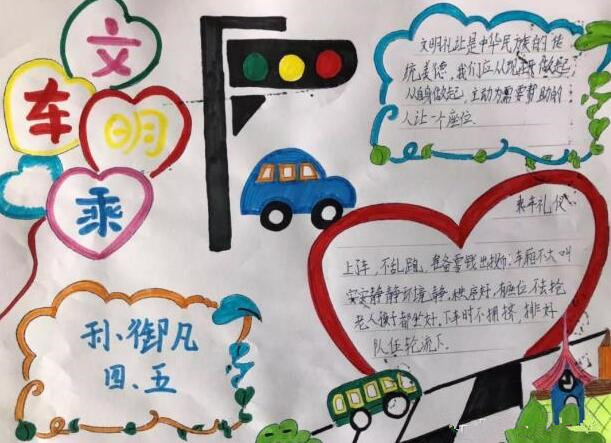 文
明
乘
车
文明礼让是中华民族的传
统美德,我们应从现在做起
从自身做起,主动为需要帮助的
人让一个座位.
乘车礼仪
上车,不乱跑,准备零钱出投币;车厢不大叫
安安静静环境静,秩序好,有座位不去抢
老人孩子都坐好.下车时不拥挤,排好
队伍轮流下.
孙御凡
四、五